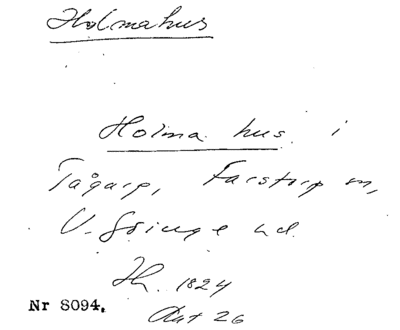 Holmahus
Holma hus i
Tågarp, Farstorp sn,
V. Göinge hd.
Jh. 1824
Akt 26
Nr 8094.